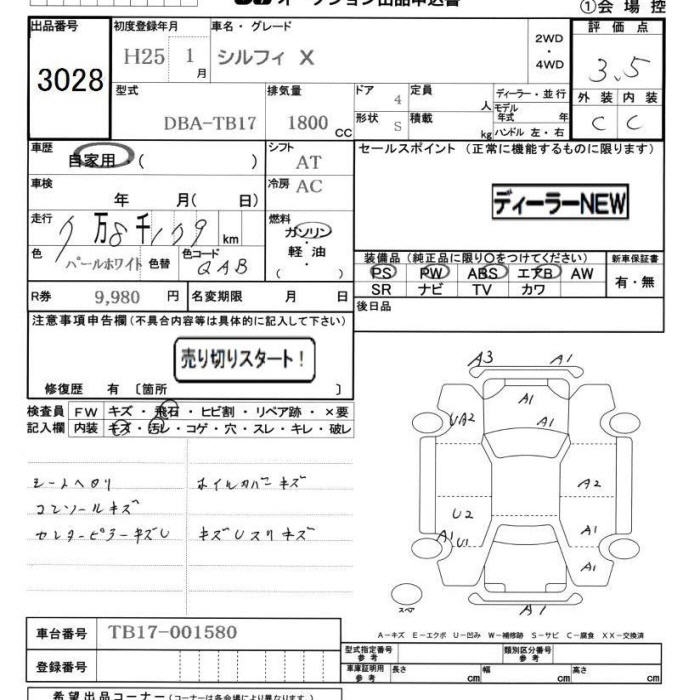 オークション出品申込書
①会場控
出品番号
3028
初度登録年月
H25 1月
車名・グレード
シルフィ X
2WD
・
4WD
評価点
3.5
型式
DBA-TB17
排気量
1800 CC
ドア 4
定員 人
ディーラー・並行
モデル年式 年
外装 内装
C C
形状 S
積載 kg
ハンドル 左・右
車歴
自家用・( )
シフト
AT
セールスポイント (正常に機能するものに限ります)
ディーラーNEW
車検
年 月( 日)
冷房 AC
走行
7万8千179 km
燃料
ガソリン
・
軽 油
( )
色
パールホワイト
色替
色コード
QAB
装備品(純正品に限り○をつけてください)
新車保証書
PS PW ABS エアB AW
有・無
SR ナビ TV カワ
R券 9,980 円
名変期限 月 日
後日品
注意事項申告欄(不具合内容等は具体的に記入して下さい)
売り切りスタート!
修復歴 有 〔箇所 〕
検査員 FW キズ・飛石・ヒビ割・リペア跡・×要
記入欄 内装 キズ・汚レ・コゲ・穴・スレ・キレ・破レ
シートヘタリ ホイルカバーキズ
コンソールキズ
センターピラーキズU キズUスリキズ
A3 A1
A1
UA2 A1
A2
U2
A1 U1 A1
A1
スペア
A1
A-キズ E-エクボ U-凹み W-補修跡 S-サビ C-腐食 XX-交換済
車台番号 TB17-001580
型式指定番号 参考
類別区分番号 参考
登録番号
車庫証明用 参考
長さ cm 幅 cm 高さ cm
希望出品コーナー(コーナーは各会場により異なります。)